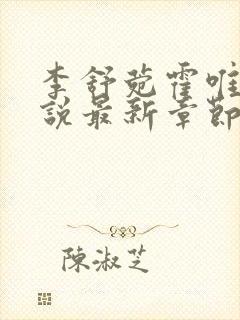 李舒菀霍唯
說最新章節
陳淑芝